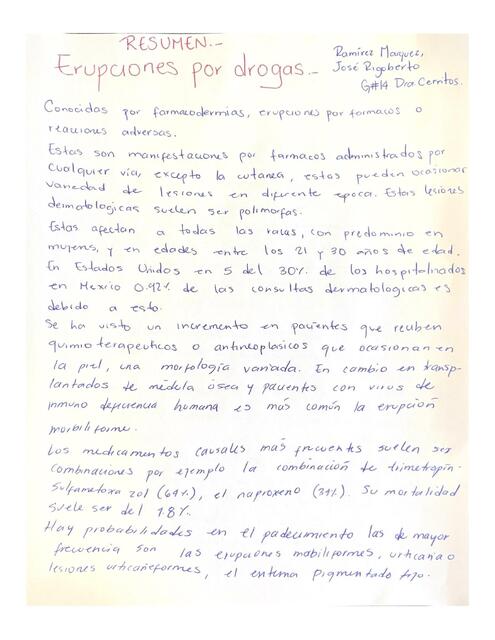 RESUMEN.-
Erupciones por drogas.-
Ramírez Marquez,
José Rigoberto
G#14 Dra. Cerritos.
Conocidas por farmacodermias, erupciones por farmacos o
reacciones adversas.
Estas son manifestaciones por farmacos administrados por
cualquier vía, excepto la cutanea, estos pueden ocasionar
variedad de lesiones en diferente epoca. Estas lesiones
dermatologicas suelen ser polimorfas.
Estas afectan a todas las razas, con predominio en
mujeres, y en edades entre los 21 y 30 años de edad.
En Estados Unidos en 5 del 30% de los hospitalizados
en Mexico 0.92% de las consultas dermatologicas es
debido a esto.
Se ha visto un incremento en pacientes que reciben
quimioterapeuticos o antineoplasicos que ocasionan en
la piel, una morfología variada. En cambio en transp-
lantados de médula ósea y pacientes con virus de
inmuno deficiencia humana es más común la erupción
morbiliforme.
Los medicamentos causales más frecuentes suelen ser
combinaciones por ejemplo la combinación de trimetropin-
Sulfametoxa zol (64%), el naproxeno (31%). Su mortalidad
suele ser del 1.8%.
Hay probabilidades en el padecimiento las de mayor
frecuencia son las erupciones mobiliformes, urticaria o
lesiones urticaneformes, el eritema pigmentado fijo.